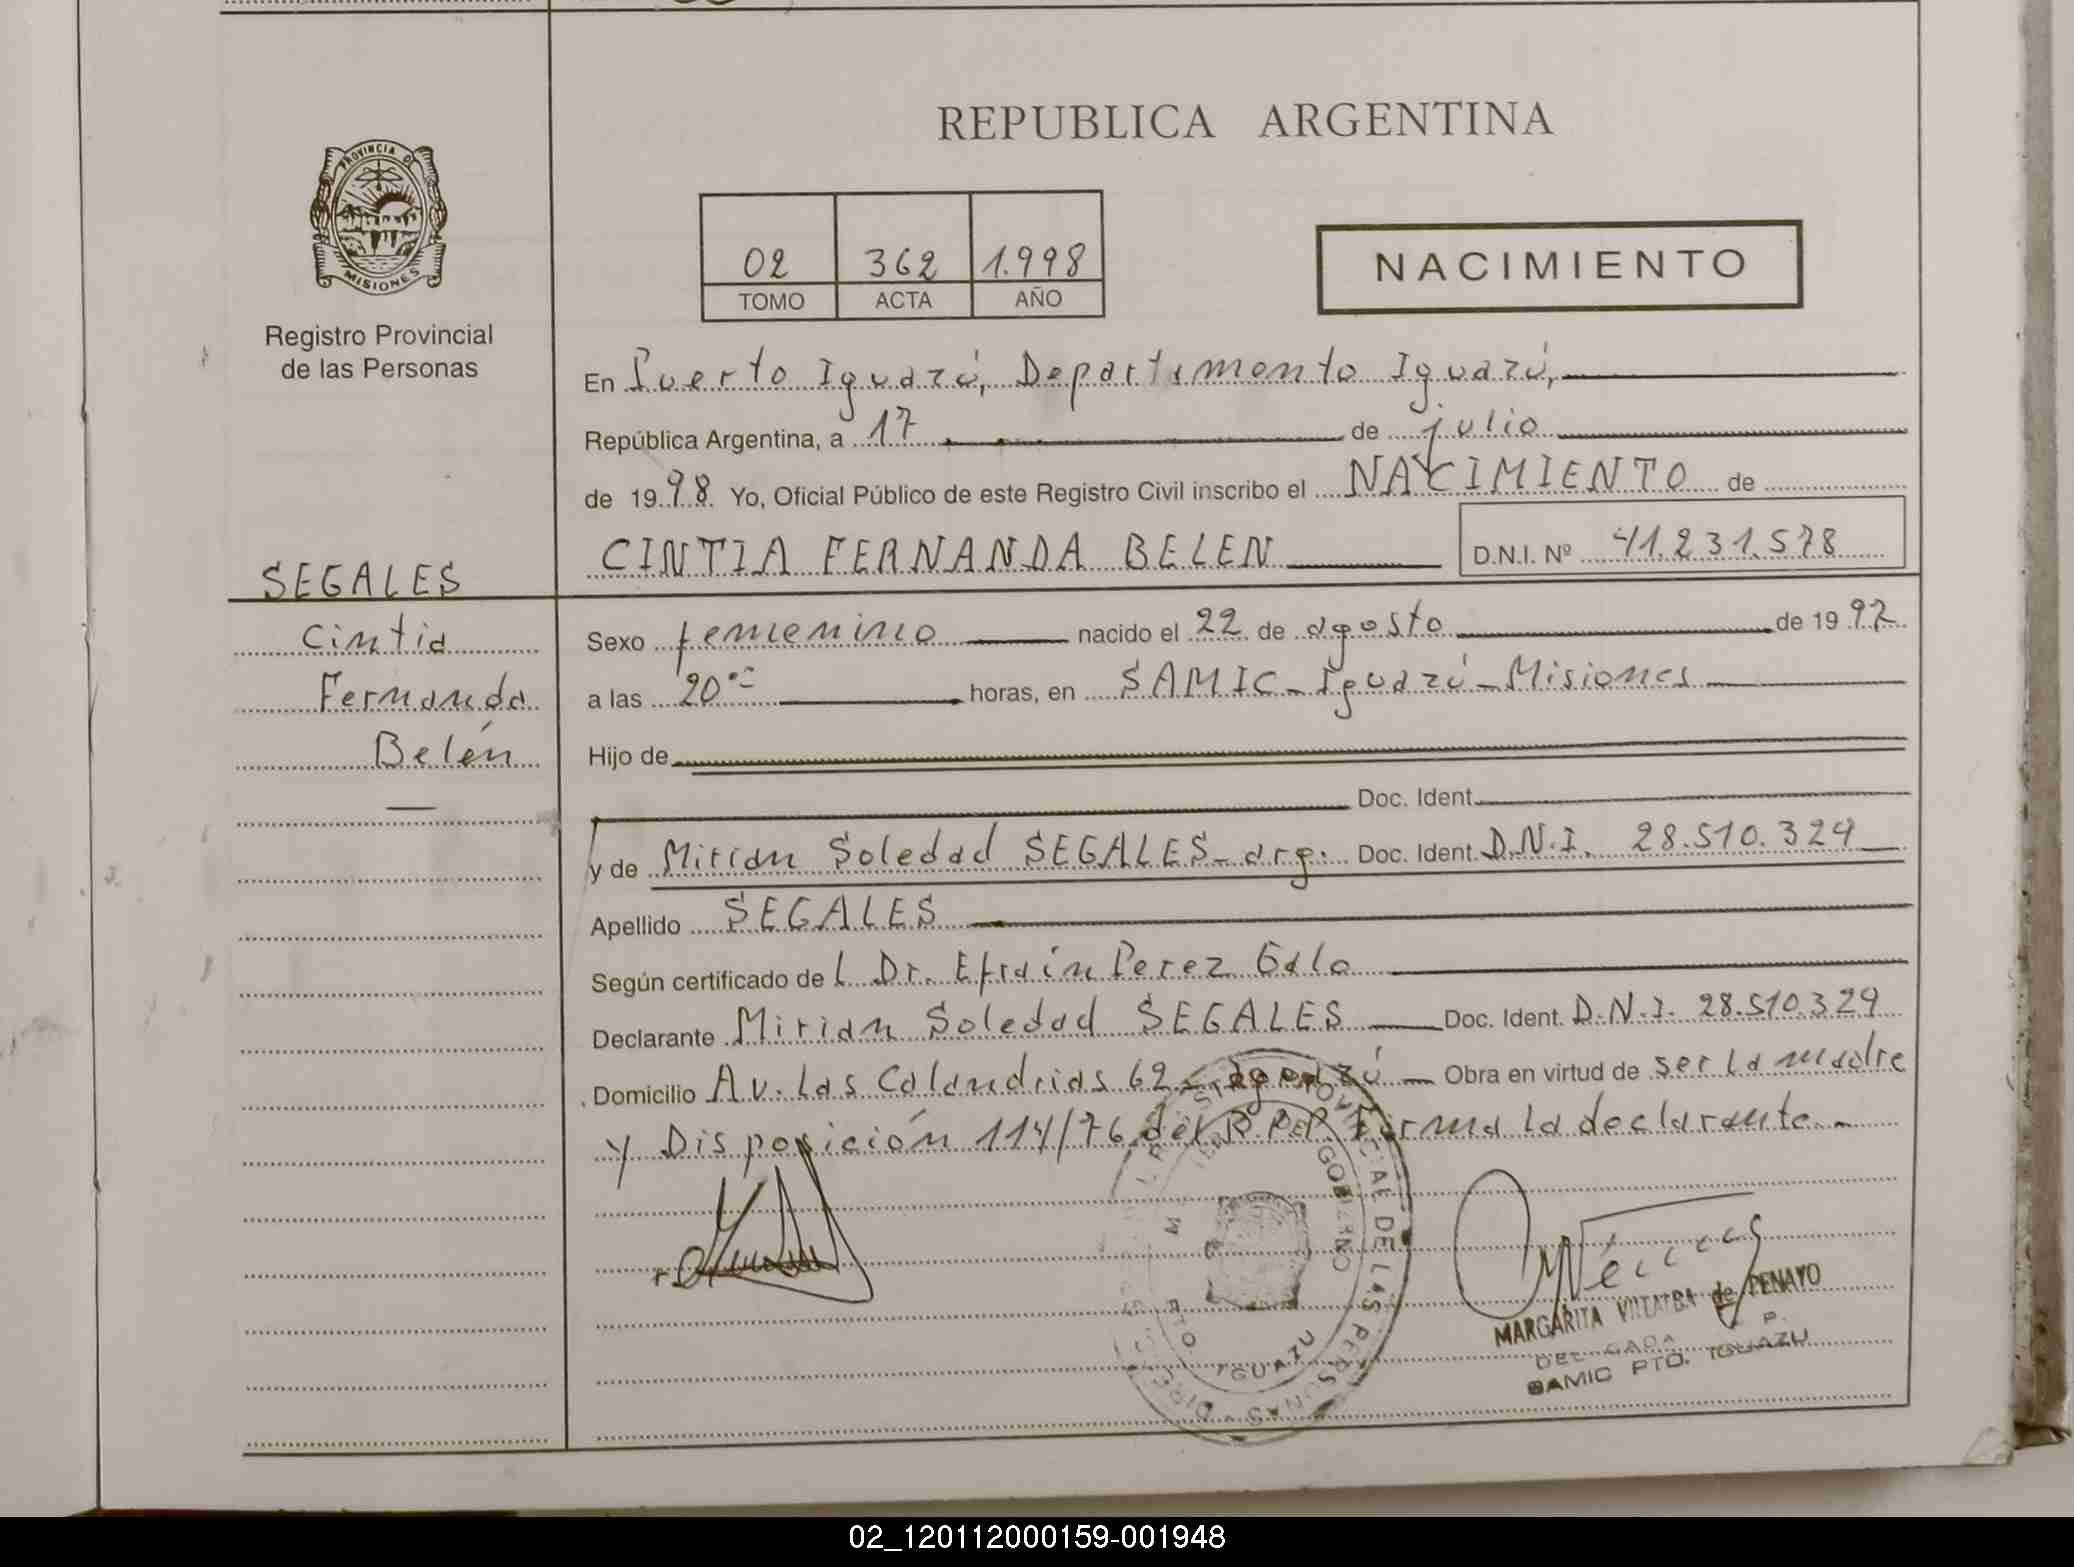 REPUBLICA ARGENTINA
PROVINCIA DE
MISIONES
Registro Provincial
de las Personas
02 362 1.998
TOMO ACTA AÑO
NACIMIENTO
En Puerto Iguazú, Departamento Iguazú,
República Argentina, a 17 de julio
de 1998 Yo, Oficial Público de este Registro Civil inscribo el NACIMIENTO de
CINTIA FERNANDA BELEN D.N.I. Nº 41.231.578
SEGALES
Cintia
Fernanda
Belén
Sexo femenino nacido el 22 de agosto de 1997
a las 20 horas, en SAMIC - Iguazú - Misiones
Hijo de
Doc. Ident.
y de Mirian Soledad SEGALES - arg. Doc. Ident. D.N.I. 28.510.329
Apellido SEGALES
Según certificado de L Dr. Efraín Perez Galo
Declarante Mirian Soledad SEGALES Doc. Ident. D.N.I. 28.510.329
Domicilio Av. Las Calandrias 62 - Iguazú Obra en virtud de ser la madre
y Disposición 114/76 del R.P.P. Firma la declarante.-
PROVINCIAL DE LAS PERSONAS
GOBIERNO
PTO. IGUAZU
MARGARITA VILLALBA de PENAYO
SAMIC PTO. IGUAZU
02_120112000159-001948